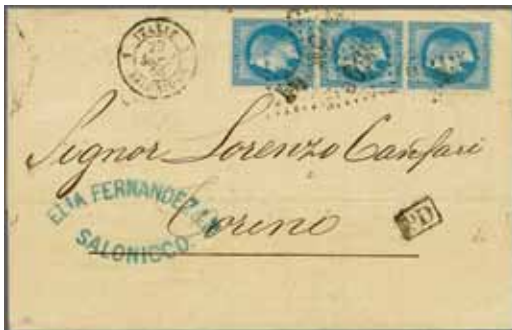 ITALIE
Signor Lorenzo Canfari
ELIA FERNANDEZ
SALONICCO
Torino
PD